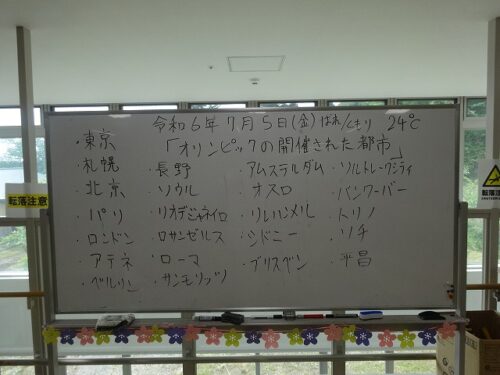 令和6年7月5日(金)はれ/くもり 24℃
「オリンピックの開催された都市」
・東京
・札幌
・北京
・パリ
・ロンドン
・アテネ
・ベルリン
・長野
・ソウル
・リオデジャネイロ
・ロサンゼルス
・ローマ
・サンモリッツ
・アムステルダム
・オスロ
・リレハンメル
・シドニー
・ブリスベン
・ソルトレークシティ
・バンクーバー
・トリノ
・ソチ
・平昌
転落注意
転落注意